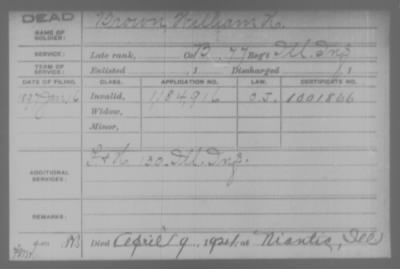 DEAD
NAME OF SOLDIER: Brown, William H.
SERVICE: Late rank, Co. B, 77 Reg't Ill. Inf.
TERM OF SERVICE: Enlisted , 1 Discharged , 1
DATE OF FILING. CLASS. APPLICATION NO. LAW. CERTIFICATE NO.
Invalid, 1184916 O.J. 1001866
Widow,
Minor,
ADDITIONAL SERVICES: 130. Ill. Inf.
REMARKS:
Died April 9, 1921. at Niantic, Ill